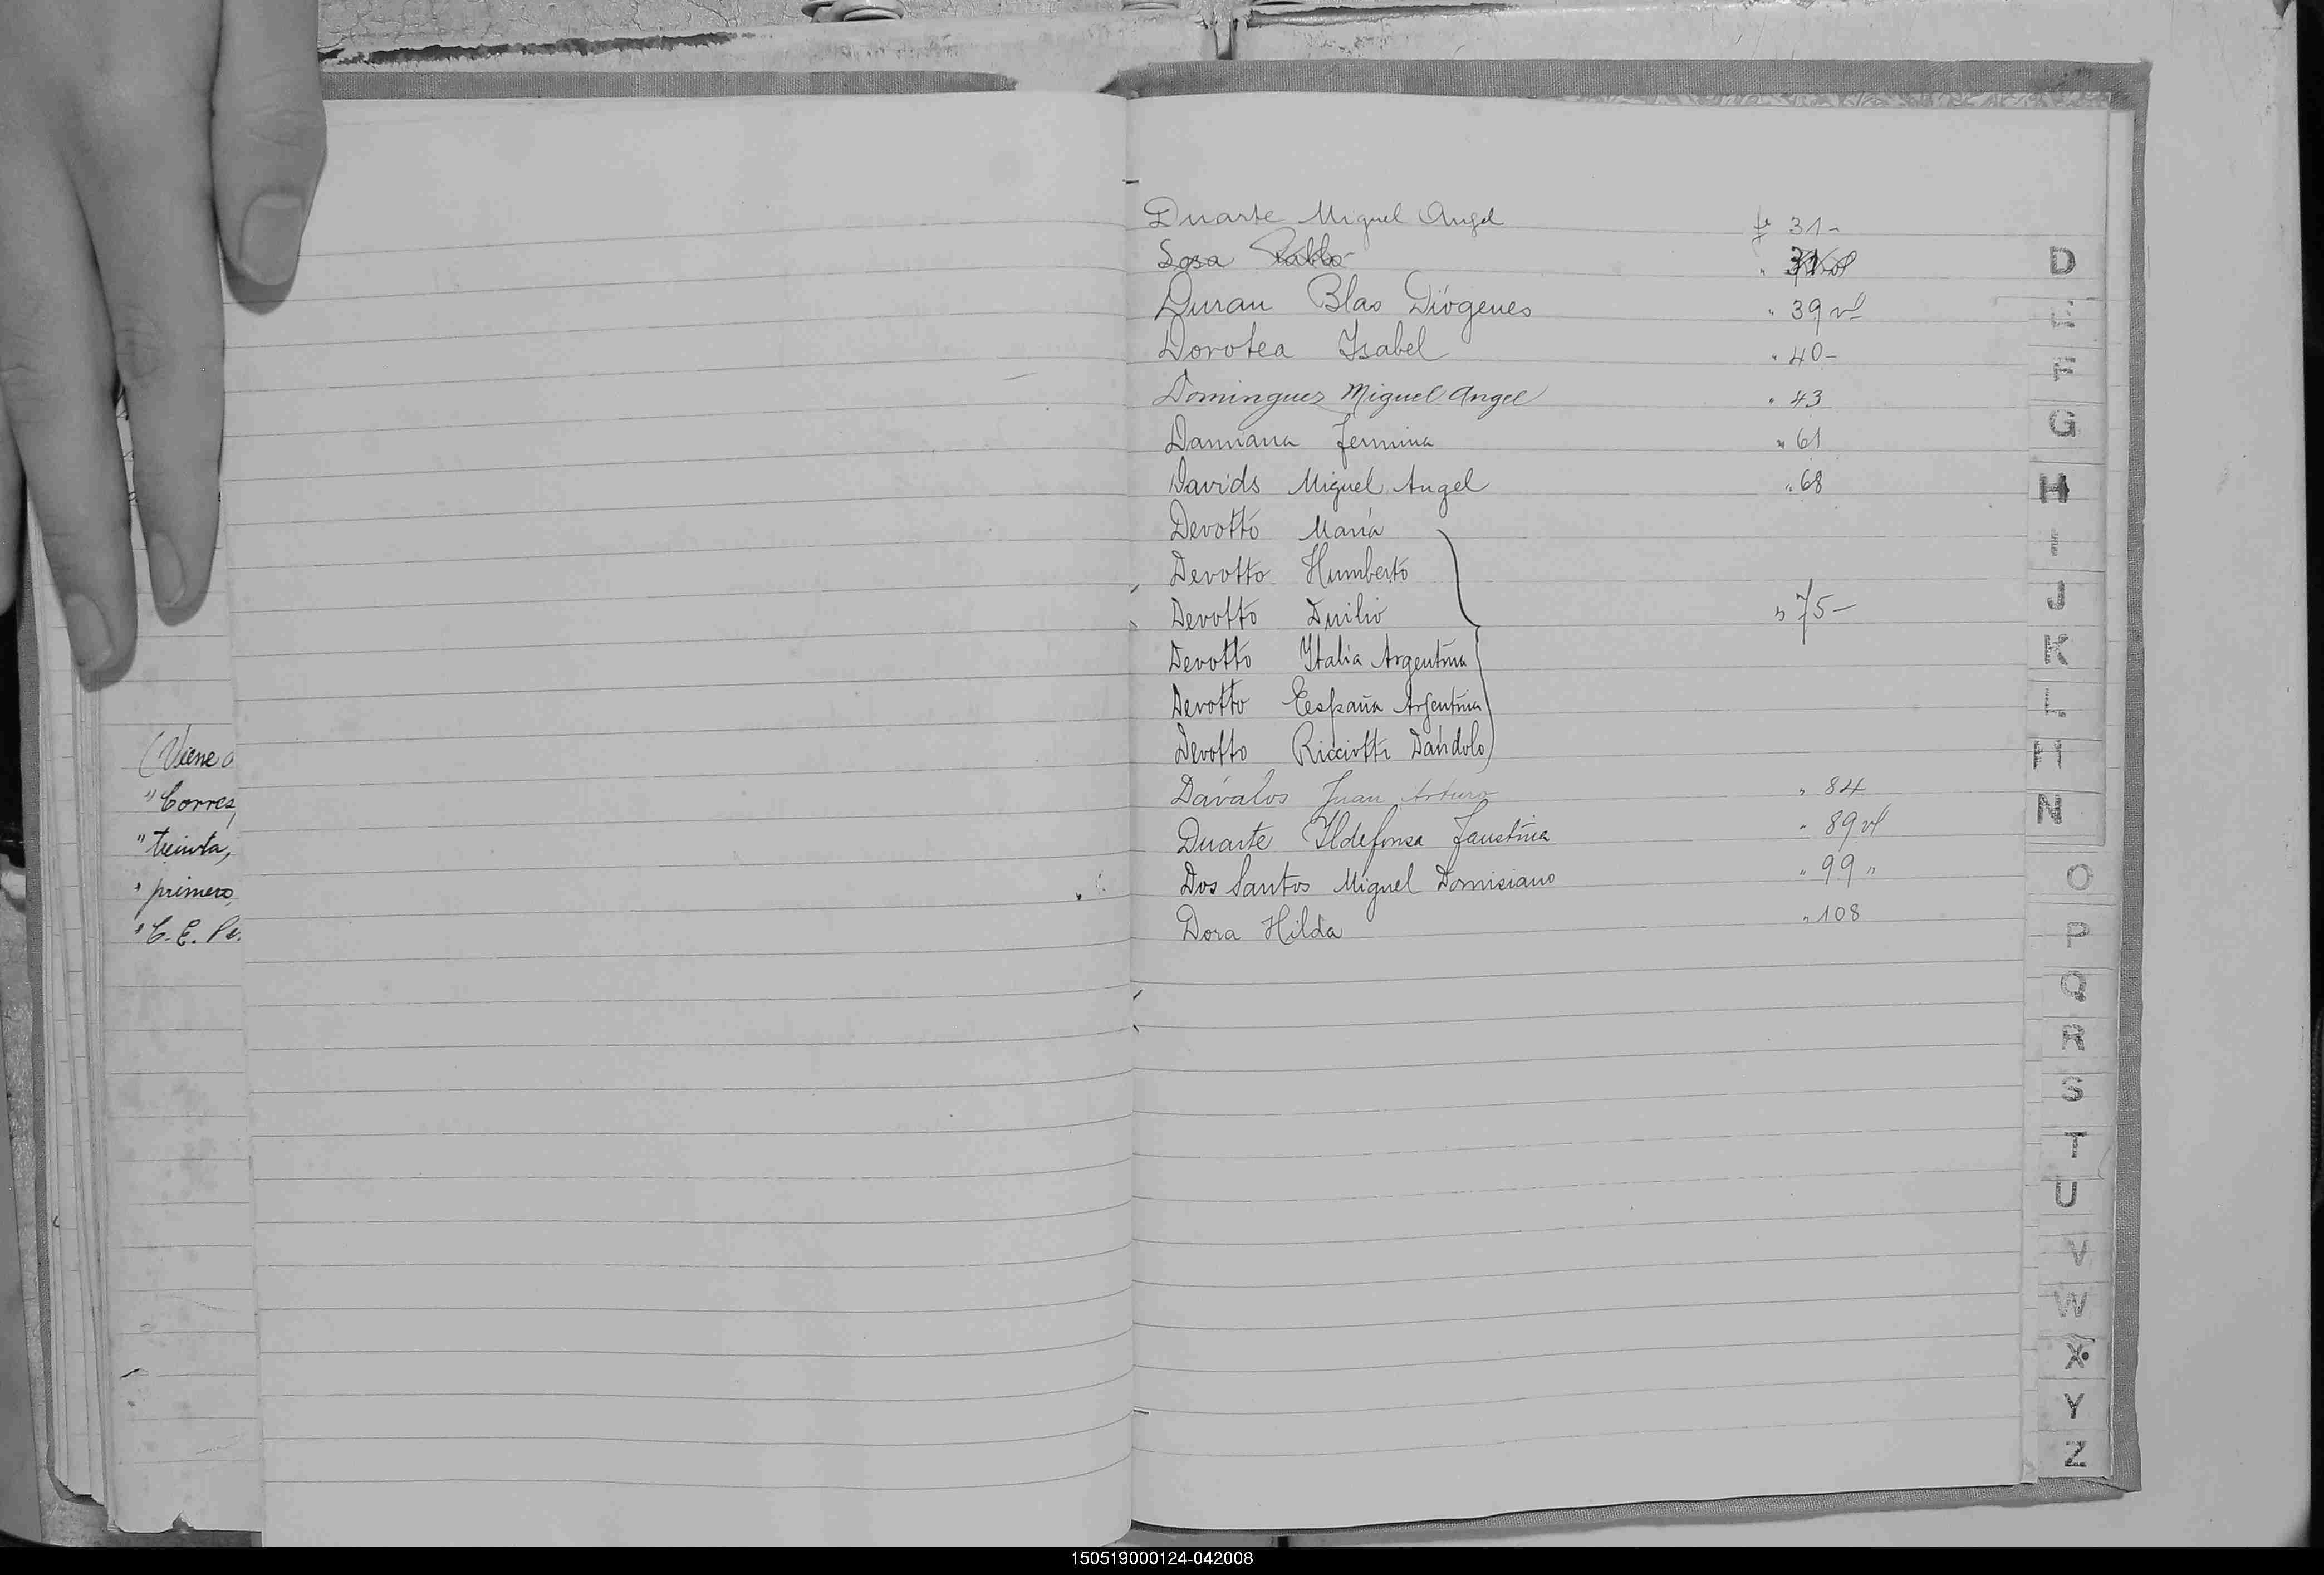 (Viene a
" Corres,
" treinta,
" primero,
" C. E. Pe.
Duarte Miguel Angel f 31-
Sosa Pablo " 31 vl
Duran Blas Diógenes " 39 vl
Dorotea Ysabel " 40-
Dominguez Miguel Angel " 43
Damiana Fermina " 61
Davids Miguel Angel " 68
Devotto María
Devotto Humberto
Devotto Duilio " 75-
Devotto Ytalia Argentina
Devotto Eespaña Argentina
Devotto Ricciotti Dándolo
Dávalos Juan Arturo " 84
Duarte Yldefonsa Faustina " 89 vl
Dos Santos Miguel Domiciano " 99 "
Dora Hilda " 108
D
E
F
G
H
I
J
K
L
M
N
O
P
Q
R
S
T
U
V
W
X
Y
Z
150519000124-042008